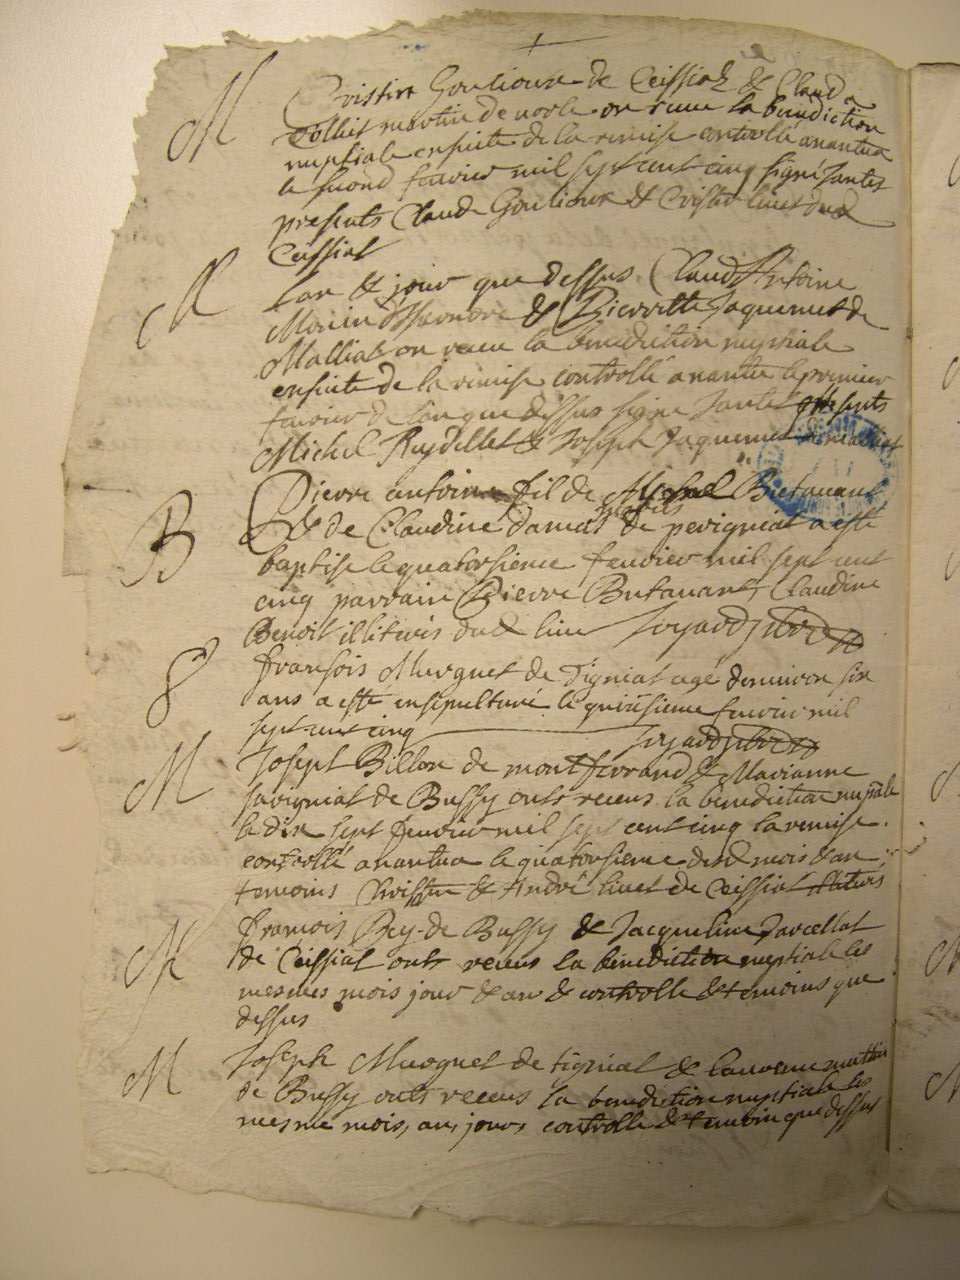 M
Cristin Goulioux de Ceissiat & Clauda
Collet martin de ont receu la benediction
nuptiale ensuite de la remise controllé a nantua
le second fevrier mil sept cent cinq signé
presents Claude Goulioux & Cristin livet dud
Ceissiat
M
Lan & jour que dessus Claud Antoine
Morin & Pierrette Jaquemet de
Malliat on receu la benediction nuptiale
ensuite de la remise controllé a nantua le premier
fevrier de lan que dessus signe presents
Michel Reydellet & Joseph Jaquemet
B
Pierre antoine fil de Michel Butavant
& de Claudine damas de perigniat a esté
baptise le quatorsieme fevrier mil sept cent
cinq parrain Pierre Butavant Claudine
Benoit illiterés dud lieu
S
françois Murguet de Tigniat agé denviron six
ans a esté ensepulturé le quinsieme fevrier mil
sept cent cinq
M
Joseph Billon de montferrand & Marianne
savigniat de Bussy onts receus la benediction nuptiale
le dix sept fevrier mil sept cent cinq la remise
controllé a nantua le quatorsieme desd mois & an
temoins Christin & André livet de Ceissiat
M
françois Rey de Bussy & Jacqueline Jarcellat
de Ceissiat onts receus la benediction nuptiale les
mesmes mois jour & an & controlle & temoins que
dessus
M
Joseph Murguet de tigniat &
de Bussy onts receus la benediction nuptiale les
mesme mois, an, jours controlle & temoin que dessus